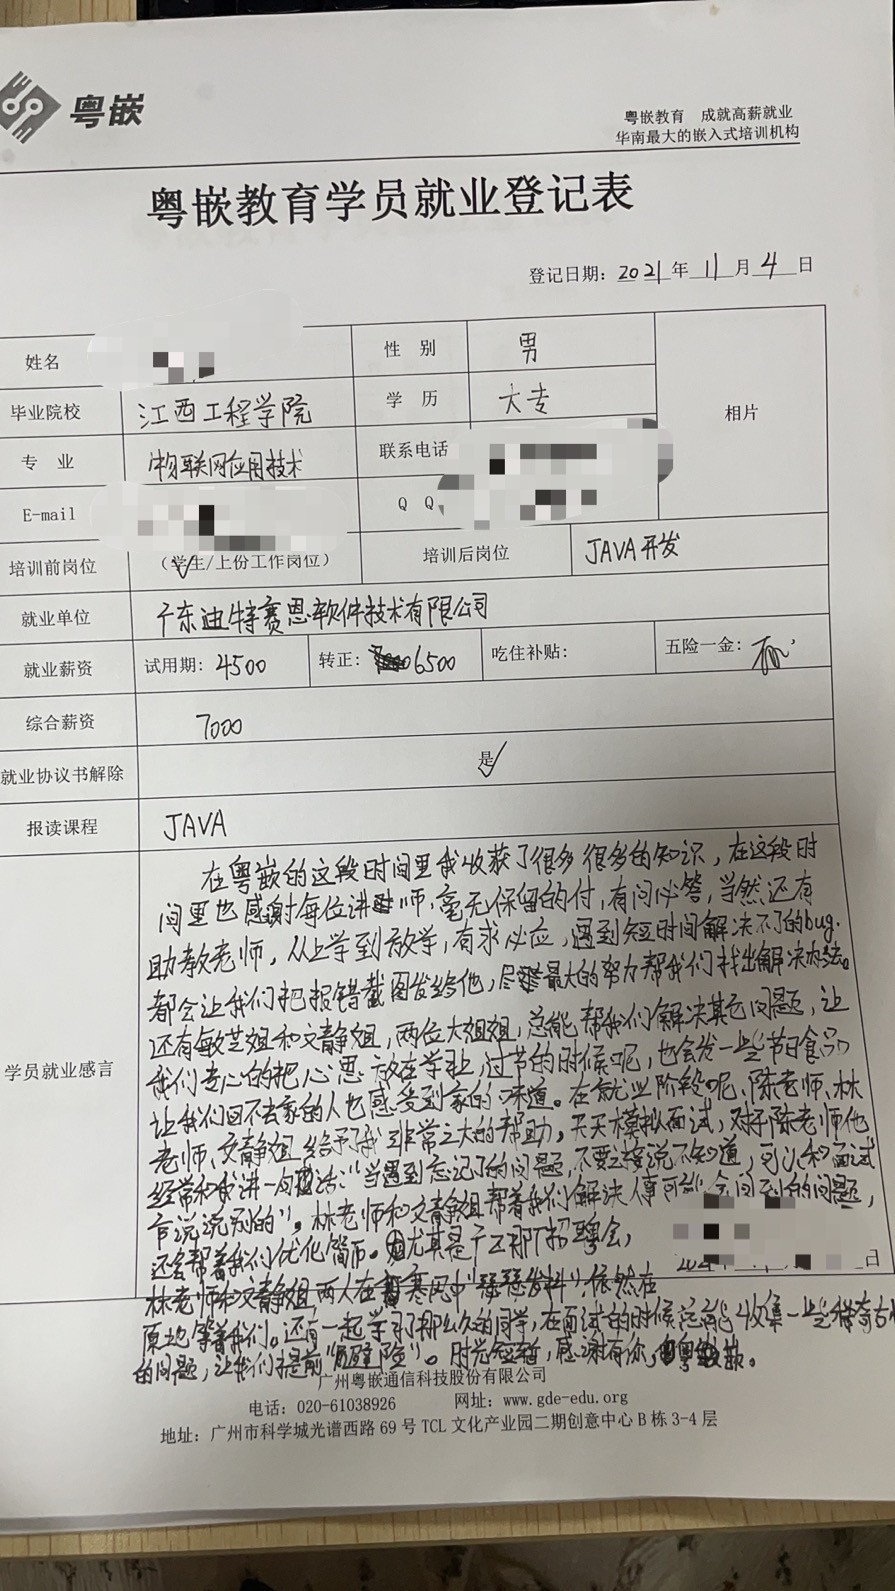 粤嵌
粤嵌教育 成就高薪就业
华南最大的嵌入式培训机构
粤嵌教育学员就业登记表
登记日期：2021年11月4日
姓名 性别 男
毕业院校 江西工程学院 学历 大专 相片
专业 物联网应用技术 联系电话
E-mail QQ
培训前岗位 （学生/上份工作岗位） 培训后岗位 JAVA开发
就业单位 广东迪特赛恩软件技术有限公司
就业薪资 试用期：4500 转正：6500 吃住补贴： 五险一金：有
综合薪资 7000
就业协议书解除 是
报读课程 JAVA
学员就业感言
在粤嵌的这段时间里我收获了很多很多的知识，在这段时
间里也感谢每位讲师，毫无保留的付，有问必答，当然还有
助教老师，从上学到放学，有求必应，遇到短时间解决不了的bug.
都会让我们把报错截图发给他，尽最大的努力帮我们找出解决办法。
还有敏芝姐和文静姐，两位大姐姐，总能帮我们解决其它问题，让
我们专心的把心思放在学业，过节的时候呢，也会发一些节日食品
让我们回不去家的人也感受到家的味道。在就业阶段呢，陈老师、林
老师、文静姐给予了我非常之大的帮助，天天模拟面试，对于陈老师他
经常和我讲一句话：“当遇到忘记了的问题，不要直接说不知道，可以和面试
官说说别的”。林老师和文静姐帮着我们解决人事可能会问到的问题，
还会帮着我们优化简历。尤其是广工那个招聘会，
林老师和文静姐两人在寒风中“瑟瑟发抖”，依然在
原地等着我们。还有一起学习那么久的同学，在面试的时候总能收集一些稀奇古怪
的问题，让我们提前“避险”。时光短暂，感谢有你，粤嵌。
日
广州粤嵌通信科技股份有限公司
电话：020-61038926 网址：www.gde-edu.org
地址：广州市科学城光谱西路69号TCL文化产业园二期创意中心B栋3-4层